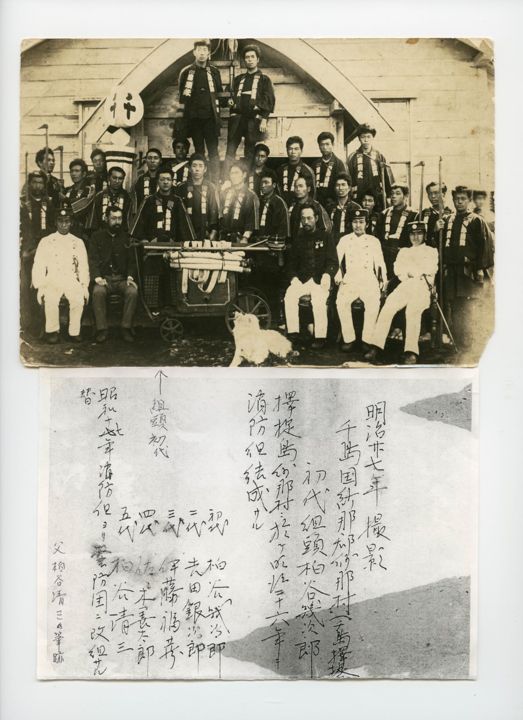 明治卅七年 撮影
千島国紗那郡紗那村
初代組頭柏谷幾次郎
擇捉島紗那村ニ於
消防組結成サル
初代 柏谷幾次郎
二代 吉田銀次郎
三代 伊藤福蔵
四代 佐々木長太郎
五代 柏谷清三
↑組頭初代
昭和十七年消防組ヨリ警防団ニ改組サル
父柏谷清三の筆跡